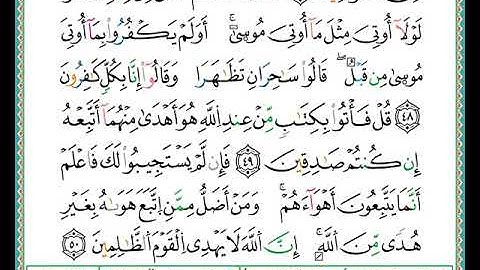 لَوْلَآ أُوتِىَ مِثْلَ مَآ أُوتِىَ مُوسَىٰٓ ۚ أَوَلَمْ يَكْفُرُوا۟ بِمَآ أُوتِىَ
مُوسَىٰ مِن قَبْلُ ۖ قَالُوا۟ سَـٰحِرَانِ تَظَـٰهَرَا وَقَالُوٓا۟ إِنَّا بِكُلٍّ كَـٰفِرُونَ
٤٨ قُلْ فَأْتُوا۟ بِكِتَـٰبٍ مِّنْ عِندِ ٱللَّهِ هُوَ أَهْدَىٰ مِنْهُمَآ أَتَّبِعْهُ
إِن كُنتُمْ صَـٰدِقِينَ ٤٩ فَإِن لَّمْ يَسْتَجِيبُوا۟ لَكَ فَٱعْلَمْ
أَنَّمَا يَتَّبِعُونَ أَهْوَآءَهُمْ ۚ وَمَنْ أَضَلُّ مِمَّنِ ٱتَّبَعَ هَوَىٰهُ بِغَيْرِ
هُدًى مِّنَ ٱللَّهِ ۚ إِنَّ ٱللَّهَ لَا يَهْدِى ٱلْقَوْمَ ٱلظَّـٰلِمِينَ ٥٠